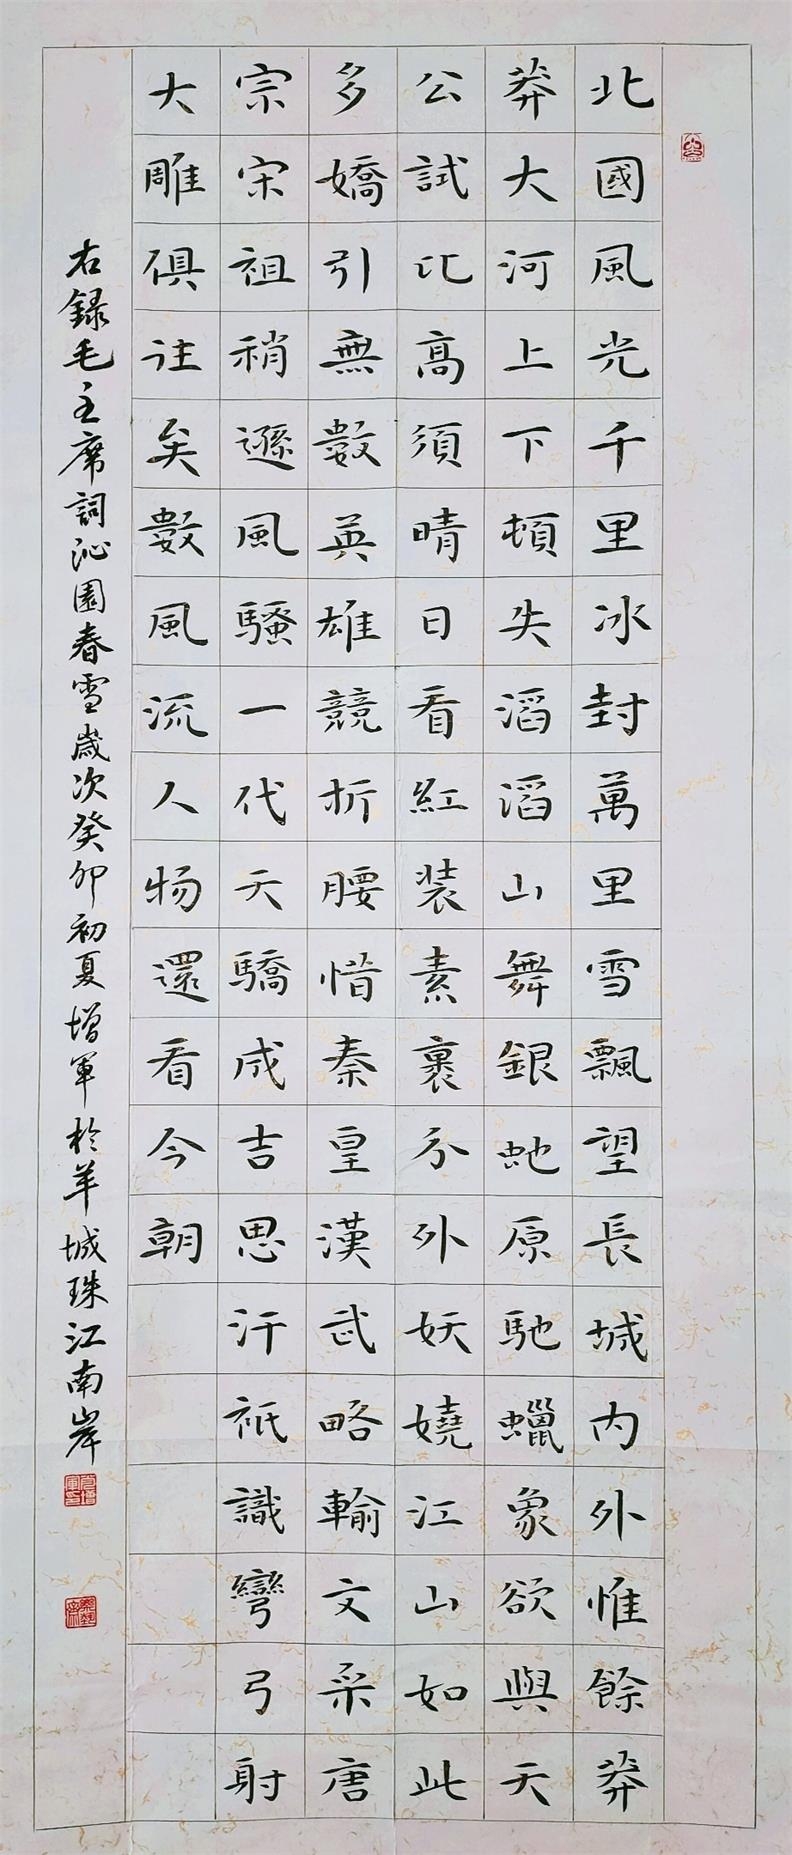 北國風光千里冰封萬里雪飄望長城内外惟餘莽
莽大河上下頓失滔滔山舞銀虵原馳蠟象欲與天
公試比高須晴日看紅装素裹分外妖嬈江山如此
多嬌引無數英雄競折腰惜秦皇漢武略輸文采唐
宗宋祖稍遜風騷一代天驕成吉思汗祇識彎弓射
大雕俱往矣數風流人物還看今朝
右録毛主席詞沁園春雪歲次癸卯初夏增軍於羊城珠江南岸